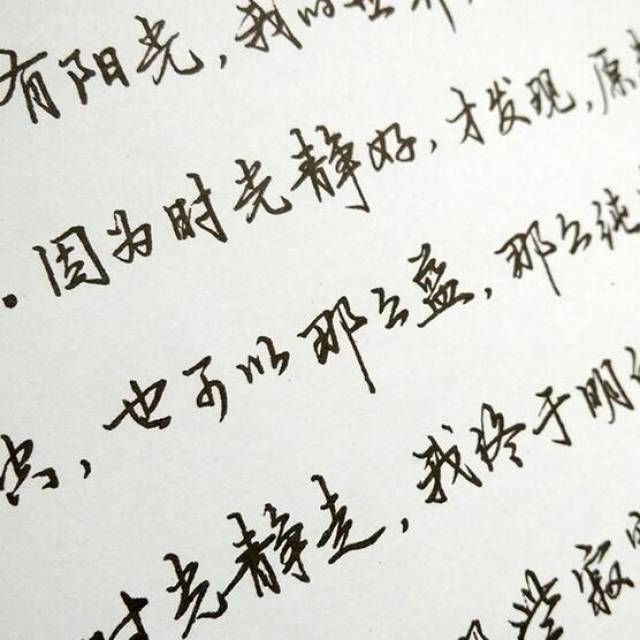 有阳光,我的世界
.因为时光静好,才发现,原
,也可以那么蓝,那么纯
时光静走,我终于明
些寂